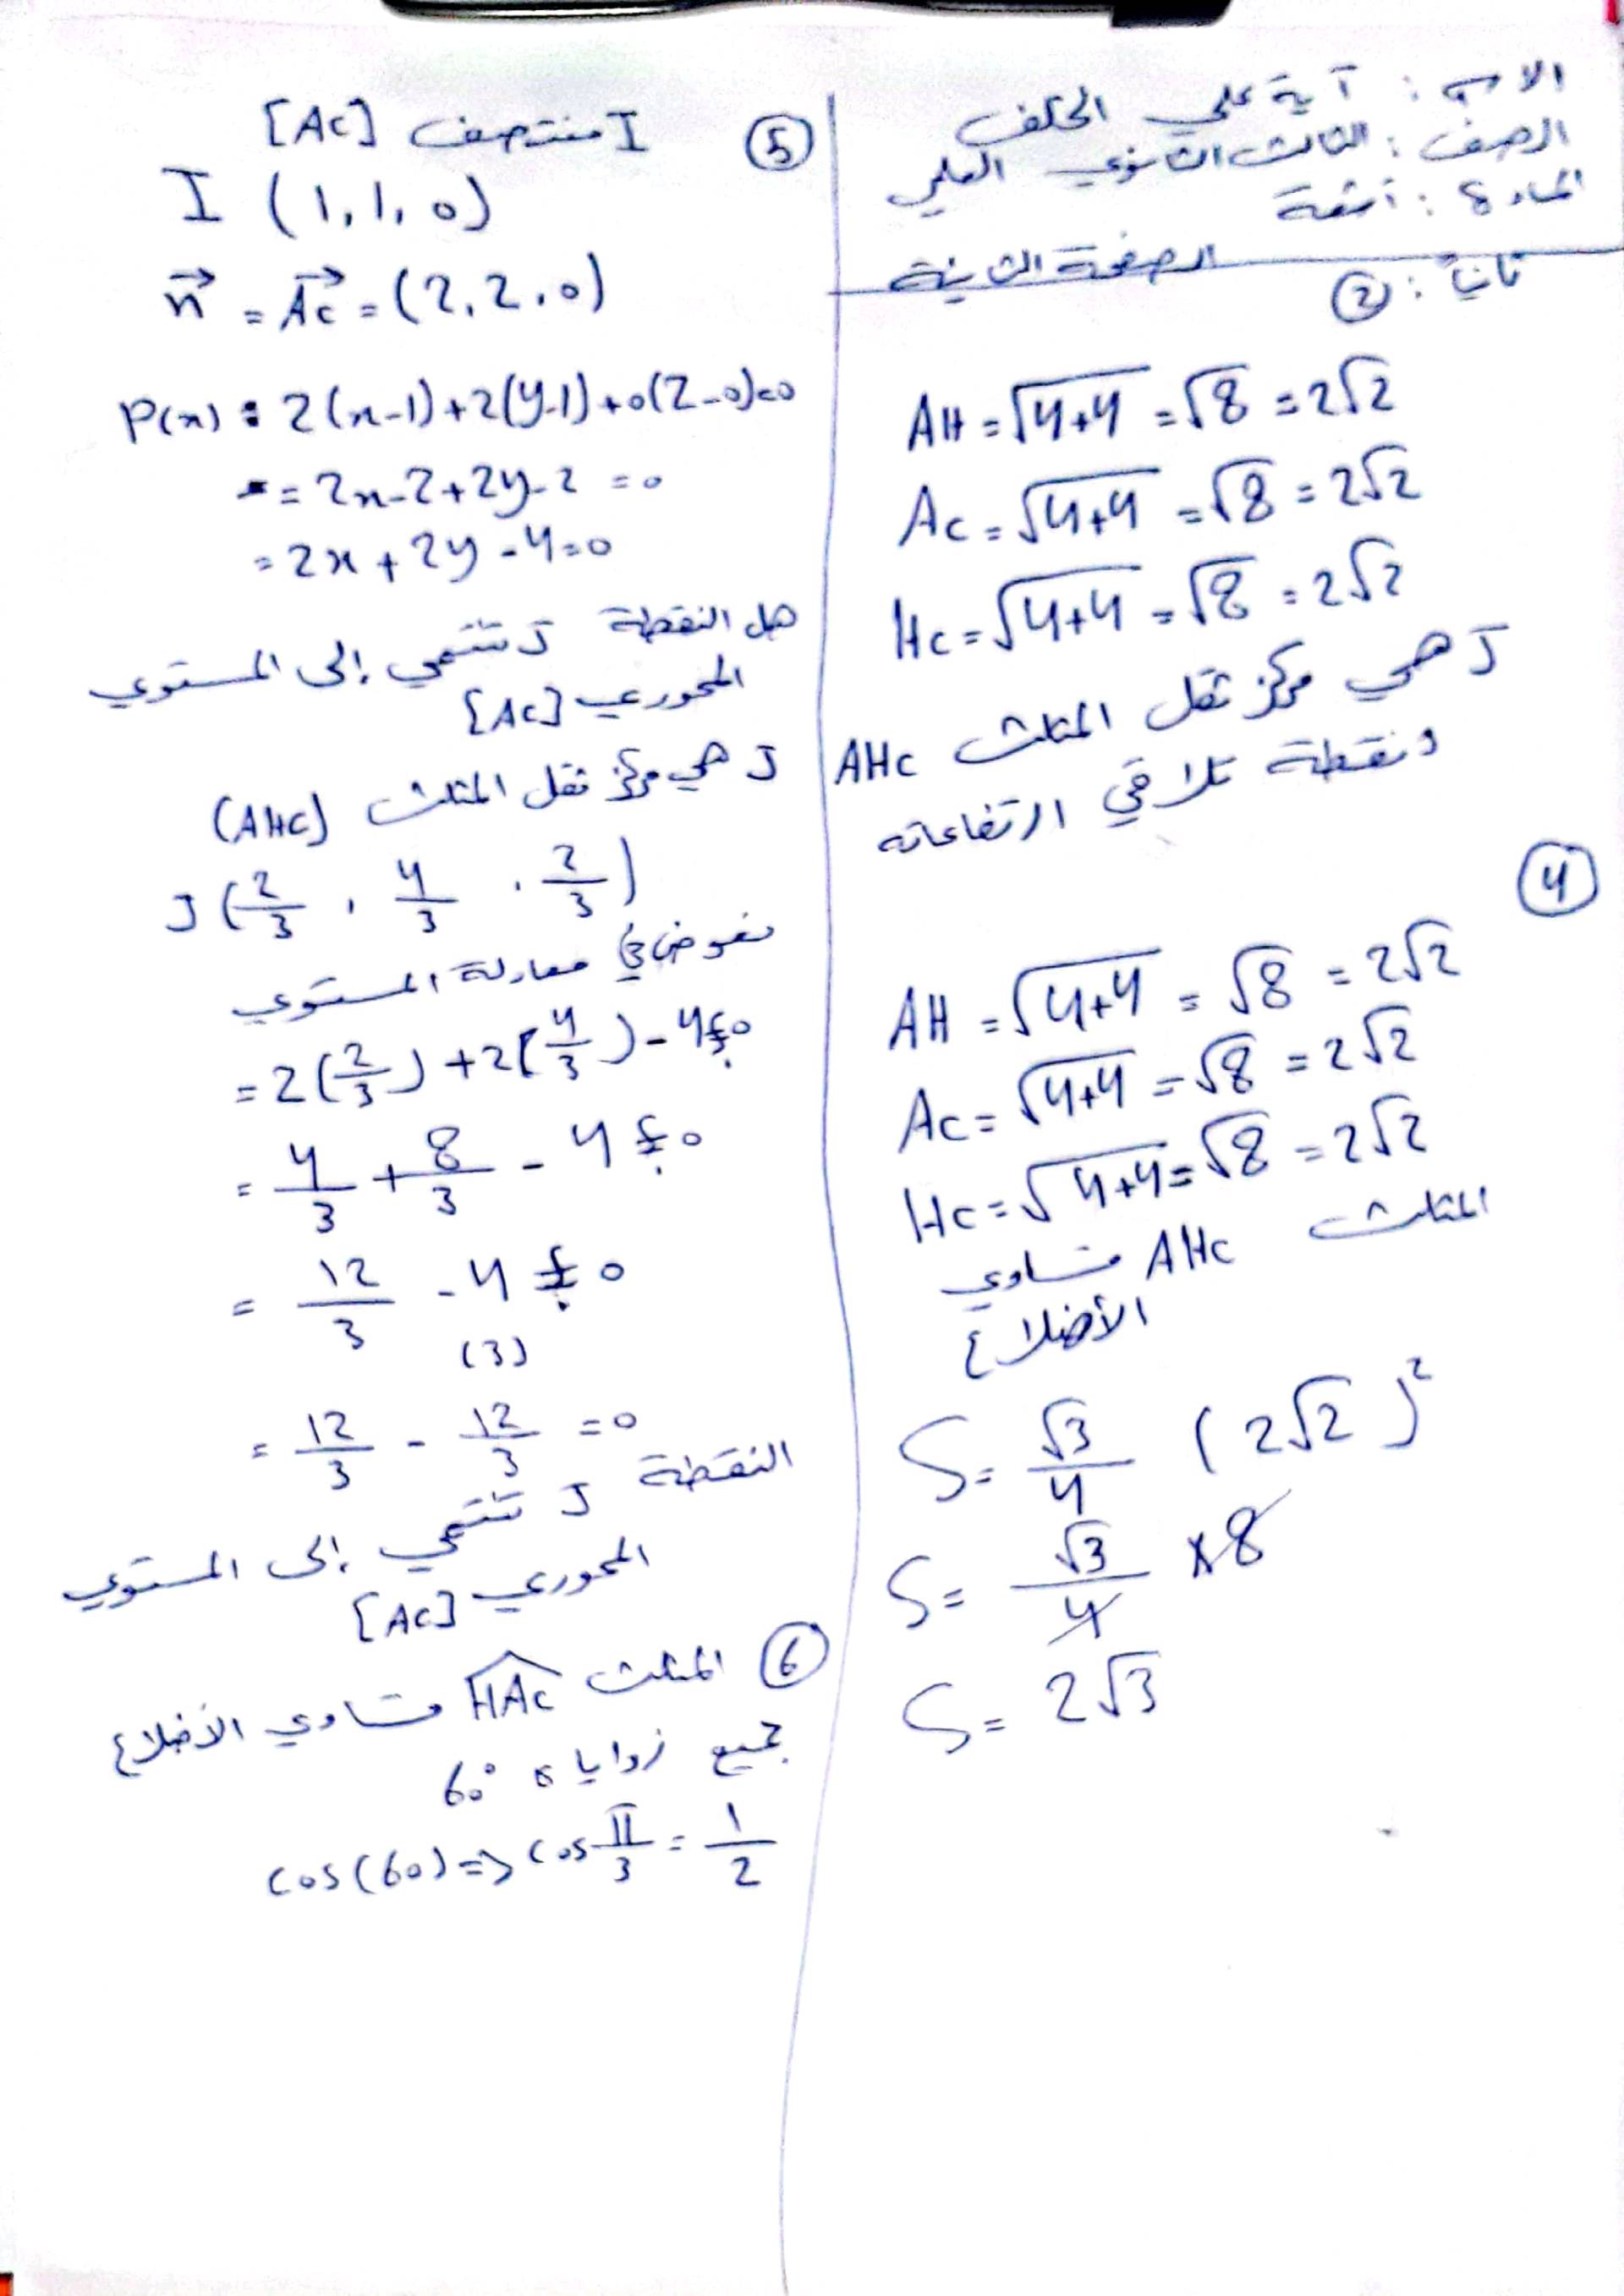 الاسم : آية علي الخلف
الصف : الثالث الثانوي العلمي
المادة : أتمتة
الصفحة الثانية
ثانياً : ②
AH = √4+4 = √8 = 2√2
AC = √4+4 = √8 = 2√2
HC = √4+4 = √8 = 2√2
J هي مركز ثقل المثلث AHC
ونقطة تلاقي ارتفاعاته
④
AH = √4+4 = √8 = 2√2
AC = √4+4 = √8 = 2√2
HC = √4+4 = √8 = 2√2
المثلث AHC متساوي
الأضلاع
S = √3/4 (2√2)²
S = √3/4 × 8
S = 2√3
⑤ I منتصف [AC]
I (1, 1, 0)
n⃗ = AC⃗ = (2, 2, 0)
P(x) : 2(x-1)+2(y-1)+0(z-0)=0
= 2x-2+2y-2 =0
= 2x+2y-4=0
هل النقطة J تنتمي إلى المستوي
المحوري [AC]
J هي مركز ثقل المثلث (AHC)
J (2/3 , 4/3 , 2/3)
نعوض في معادلة المستوي
= 2(2/3) + 2(4/3) - 4 ≟ 0
= 4/3 + 8/3 - 4 ≟ 0
= 12/3 - 4 ≟ 0
(3)
= 12/3 - 12/3 = 0
النقطة J تنتمي إلى المستوي
المحوري [AC]
⑥ المثلث HAC متساوي الأضلاع
جميع زواياه 60°
cos(60) => cos π/3 = 1/2